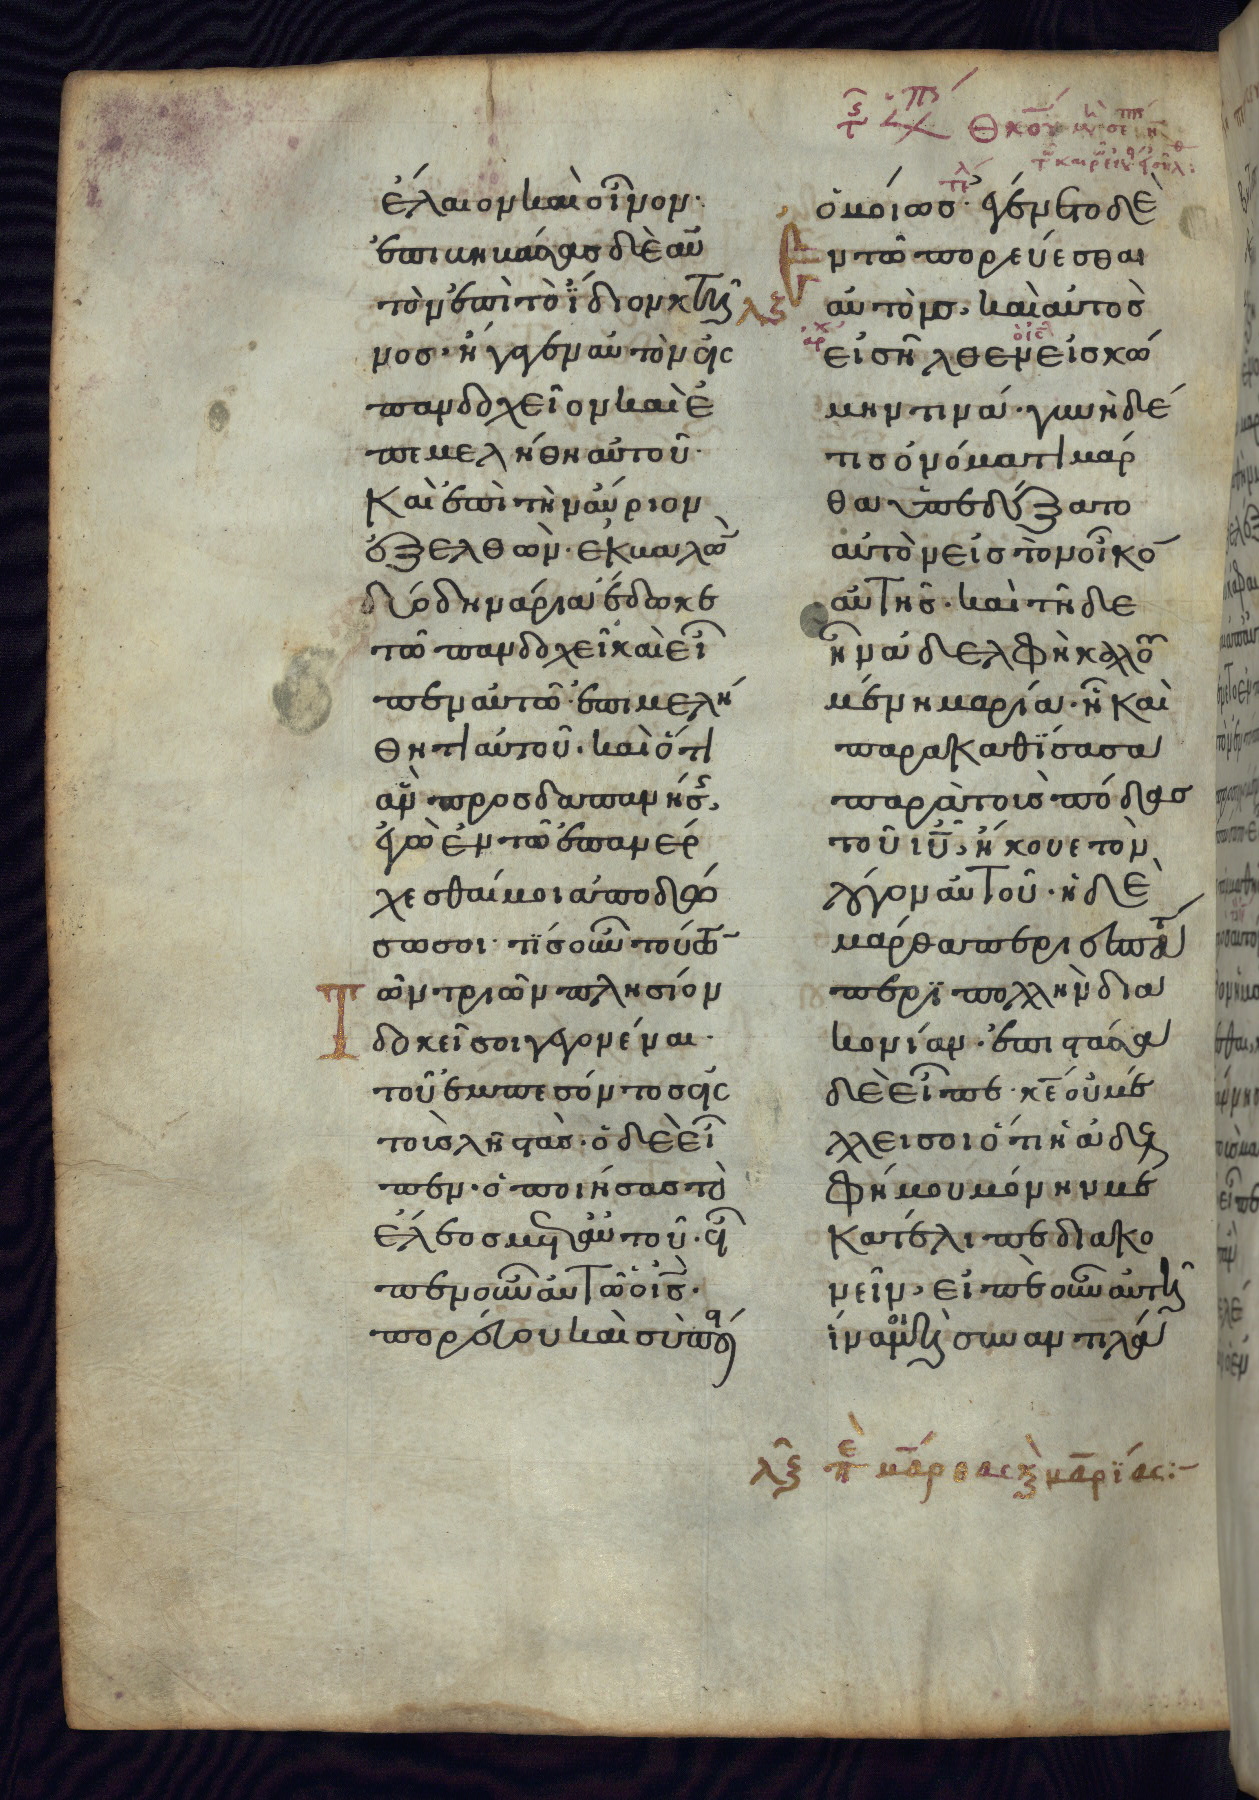 ἔλαιον καὶ οἶνον·
ἐπικηκάσας δὲ αὐ
τὸν ἐπὶ τὸ ἴδιον κτῆ
νος· ἤγαγεν αὐτὸν εἰς
πανδοχεῖον καὶ ἐ
πεμελήθη αὐτοῦ·
Καὶ ἐπὶ τὴν αὔριον
ἐξελθὼν· ἐκβαλὼ
δύο δηνάρια ἔδωκε
τῶ πανδοχεῖ καὶ εἶ
πεν αὐτῶ· ἐπιμελή
θητι αὐτοῦ· καὶ ὅτι
ἂν προσδαπανήσς,
ἐγὼ ἐν τῶ ἐπανέρ
χεσθαί μοι ἀποδώ
σω σοι· τίς οὖν τούτ
ων τριῶν πλησίον
δοκεῖ σοι γεγονέναι·
τοῦ ἐμπεσόντος εἰς
τοὺς λῃστάς· ὁ δὲ εἶ
πεν· ὁ ποιήσας τὸ
ἔλεος μετ' αὐτοῦ· εἶ
πεν οὖν αὐτῶ ὁ ις·
πορεύου καὶ σὺ ποί
ὁμοίως· ἐγένετο δὲ
Εν τῶ πορεύεσθαι
αὐτοὺς, καὶ αὐτὸς
εἰσῆλθεν εἰς κώ
μην τινά· γυνὴ δέ
τις ὀνόματι μάρ
θα ὑπεδέξατο
αὐτὸν εἰς τὸν οἶκο
αὐτῆς· καὶ τῆδε
ἦν ἀδελφὴ καλου
μένη μαρία· ἣ καὶ
παρακαθίσασα
παρὰ τοὺς πόδας
τοῦ ιυ, ἤκουε τὸν
λόγον αὐτοῦ· ἡ δὲ
μάρθα περιεσπᾶτ
περὶ πολλὴν δια
κονίαν· ἐπιστάσα
δὲ εἶπε· κε οὐ μέ
λει σοι ὅτι ἡ ἀδελ
φή μου μόνην με
κατέλιπε διακο
νεῖν, εἰπὲ οὖν αὐτῆ
ἵνα μοι συναντιλά
λξ πε μάρθας καὶ μαρίας: